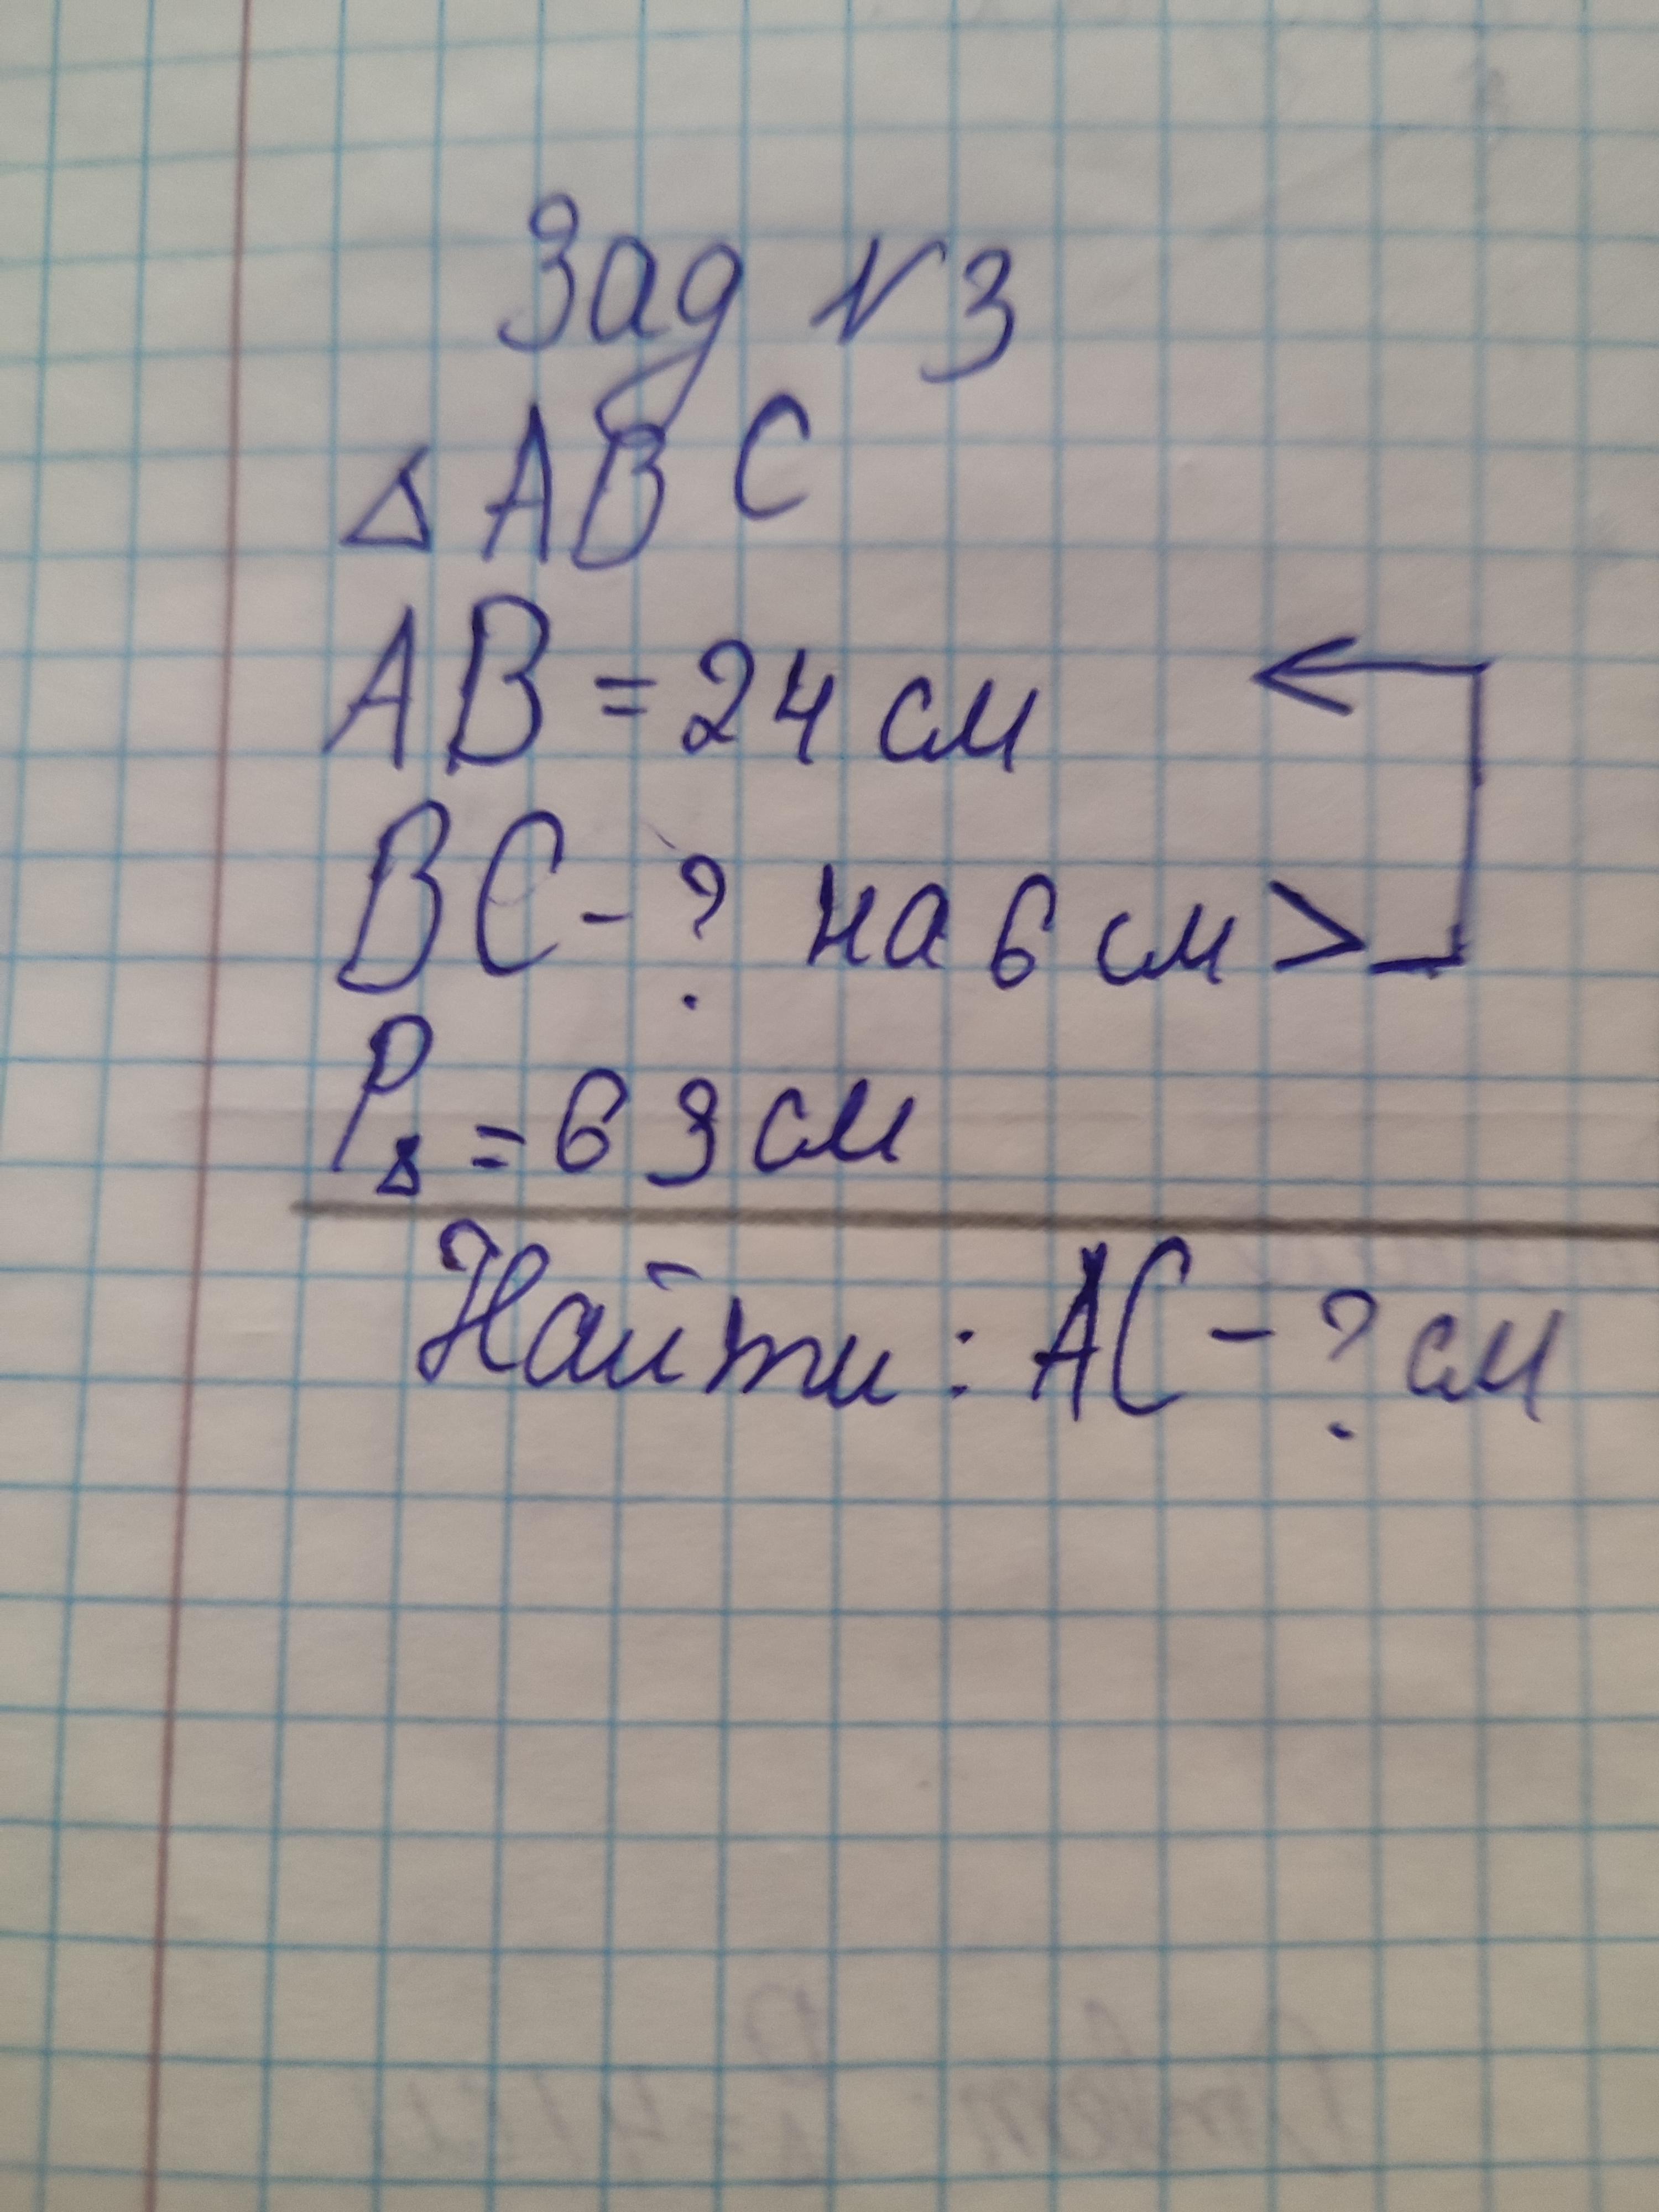 Зад №3
△ABC
AB = 24 см
BC - ? на 6 см >
P△ = 63 см
Найти: AC - ? см